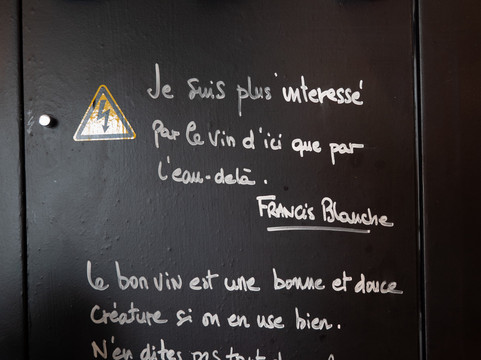 Je suis plus interessé
par le vin d'ici que par
l'eau-delà.
FRANCIS Blanche
Le bon vin est une bonne et douce
créature si on en use bien.
N'en dites pas tout